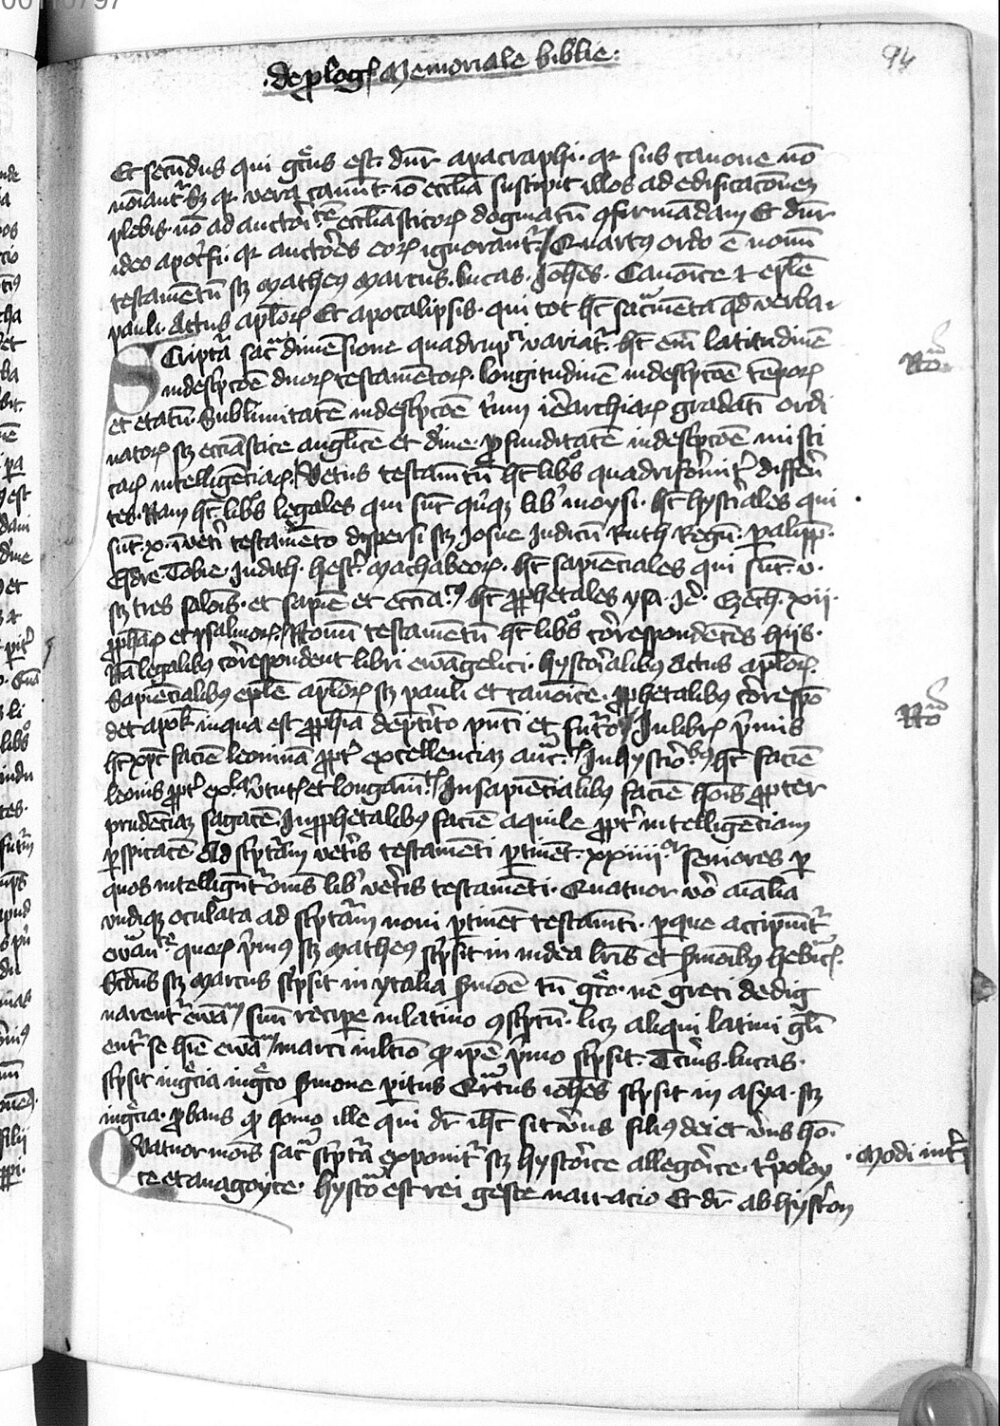 94
de prologis Memoriale biblie:
Et secundus qui grecus est. dicuntur apacraphi. quia sub canone non
nominantur Sed quia vera canunt. ideo ecclesia suscipit illos ad edificationem
plebis. non ad auctoritatem ecclesiasticorum dogmatum confirmandam Et dicuntur
ideo apocrifi. quia auctores eorum ignorantur Quartus ordo est novum
testamentum scilicet Matheus Marcus. Lucas. Johannes. Canonice et epistole
pauli. Actus apostolorum Et apocalipsis. qui tot habent sacramenta quod verba.
Scriptura sacra dimensione quadrupliciter variatur. habet enim latitudinem
in descriptione duorum testamentorum. longitudinem in descriptione temporum
et etatum. Sublimitatem in descriptione trium ierarchiarum gradatim ordi
natorum scilicet ecclesiastice angelice et divine. profunditatem in descriptione misti
carum intelligenciarum. Vetus testamentum habet libros quadriformiter differen
tes. Nam habet libros legales qui sunt quinque libri moysi. habet hystoriales qui
sunt .x. in veteri testamento dispersi scilicet Josue Judicum Ruth Regum. paralipp.
Esdre. Tobie. Judith. hester. Machabeorum. habet sapienciales qui sunt .v.
scilicet tres salomonis. et sapiencie et ecclesiasticus habet prophetales ysa. Jere. Ezech. xii.
prophetarum et psalmorum. Novum testamentum habet libros correspondentes hiis.
Nam legalibus correspondent libri ewangelici. hystorialibus Actus apostolorum.
Sapiencialibus epistole apostolorum scilicet pauli et canonice. prophetalibus correspon
det apok. in qua est prophecia de preterito presenti et futuro In libris primis
habet christus faciem leoninam propter excellenciam auctoritatis In hystorialibus habet faciem
leonis propter virtutis et longanimitatis In sapiencialibus faciem hominis propter
prudenciam sagacem. In prophetalibus faciem aquile propter intelligenciam
perspicacem Ad scripturam veteris testamenti pertinent xxiiii.or seniores per
quos intelliguntur omnes libri veteris testamenti. Quatuor vero animalia
undique oculata ad scripturam novi pertinent testamenti. per que accipiuntur
ewangeliste quorum primus scilicet Matheus scripsit in iudea litteris et sermonibus hebraicis.
Secundus scilicet Marcus scripsit in ytalia sermone tamen greco. ne greci dedig
narentur ewangelium suum recipere in latino conscriptum. licet aliqui latini glori
entur se habere ewangelium marci in latino quod ipse primo scripsit. Tercius. lucas.
scripsit in grecia in greco sermone peritus Quartus iohannes scripsit in asya. scilicet
in grecia. probans quod homo ille qui dicitur ihesus sit verus filius dei et verus homo.
Quatuor modis sacra scriptura exponitur scilicet hystorice allegorice. tropoloy
ce et anagoyce. hystoria est rei geste narracio Et dicitur ab hysteron